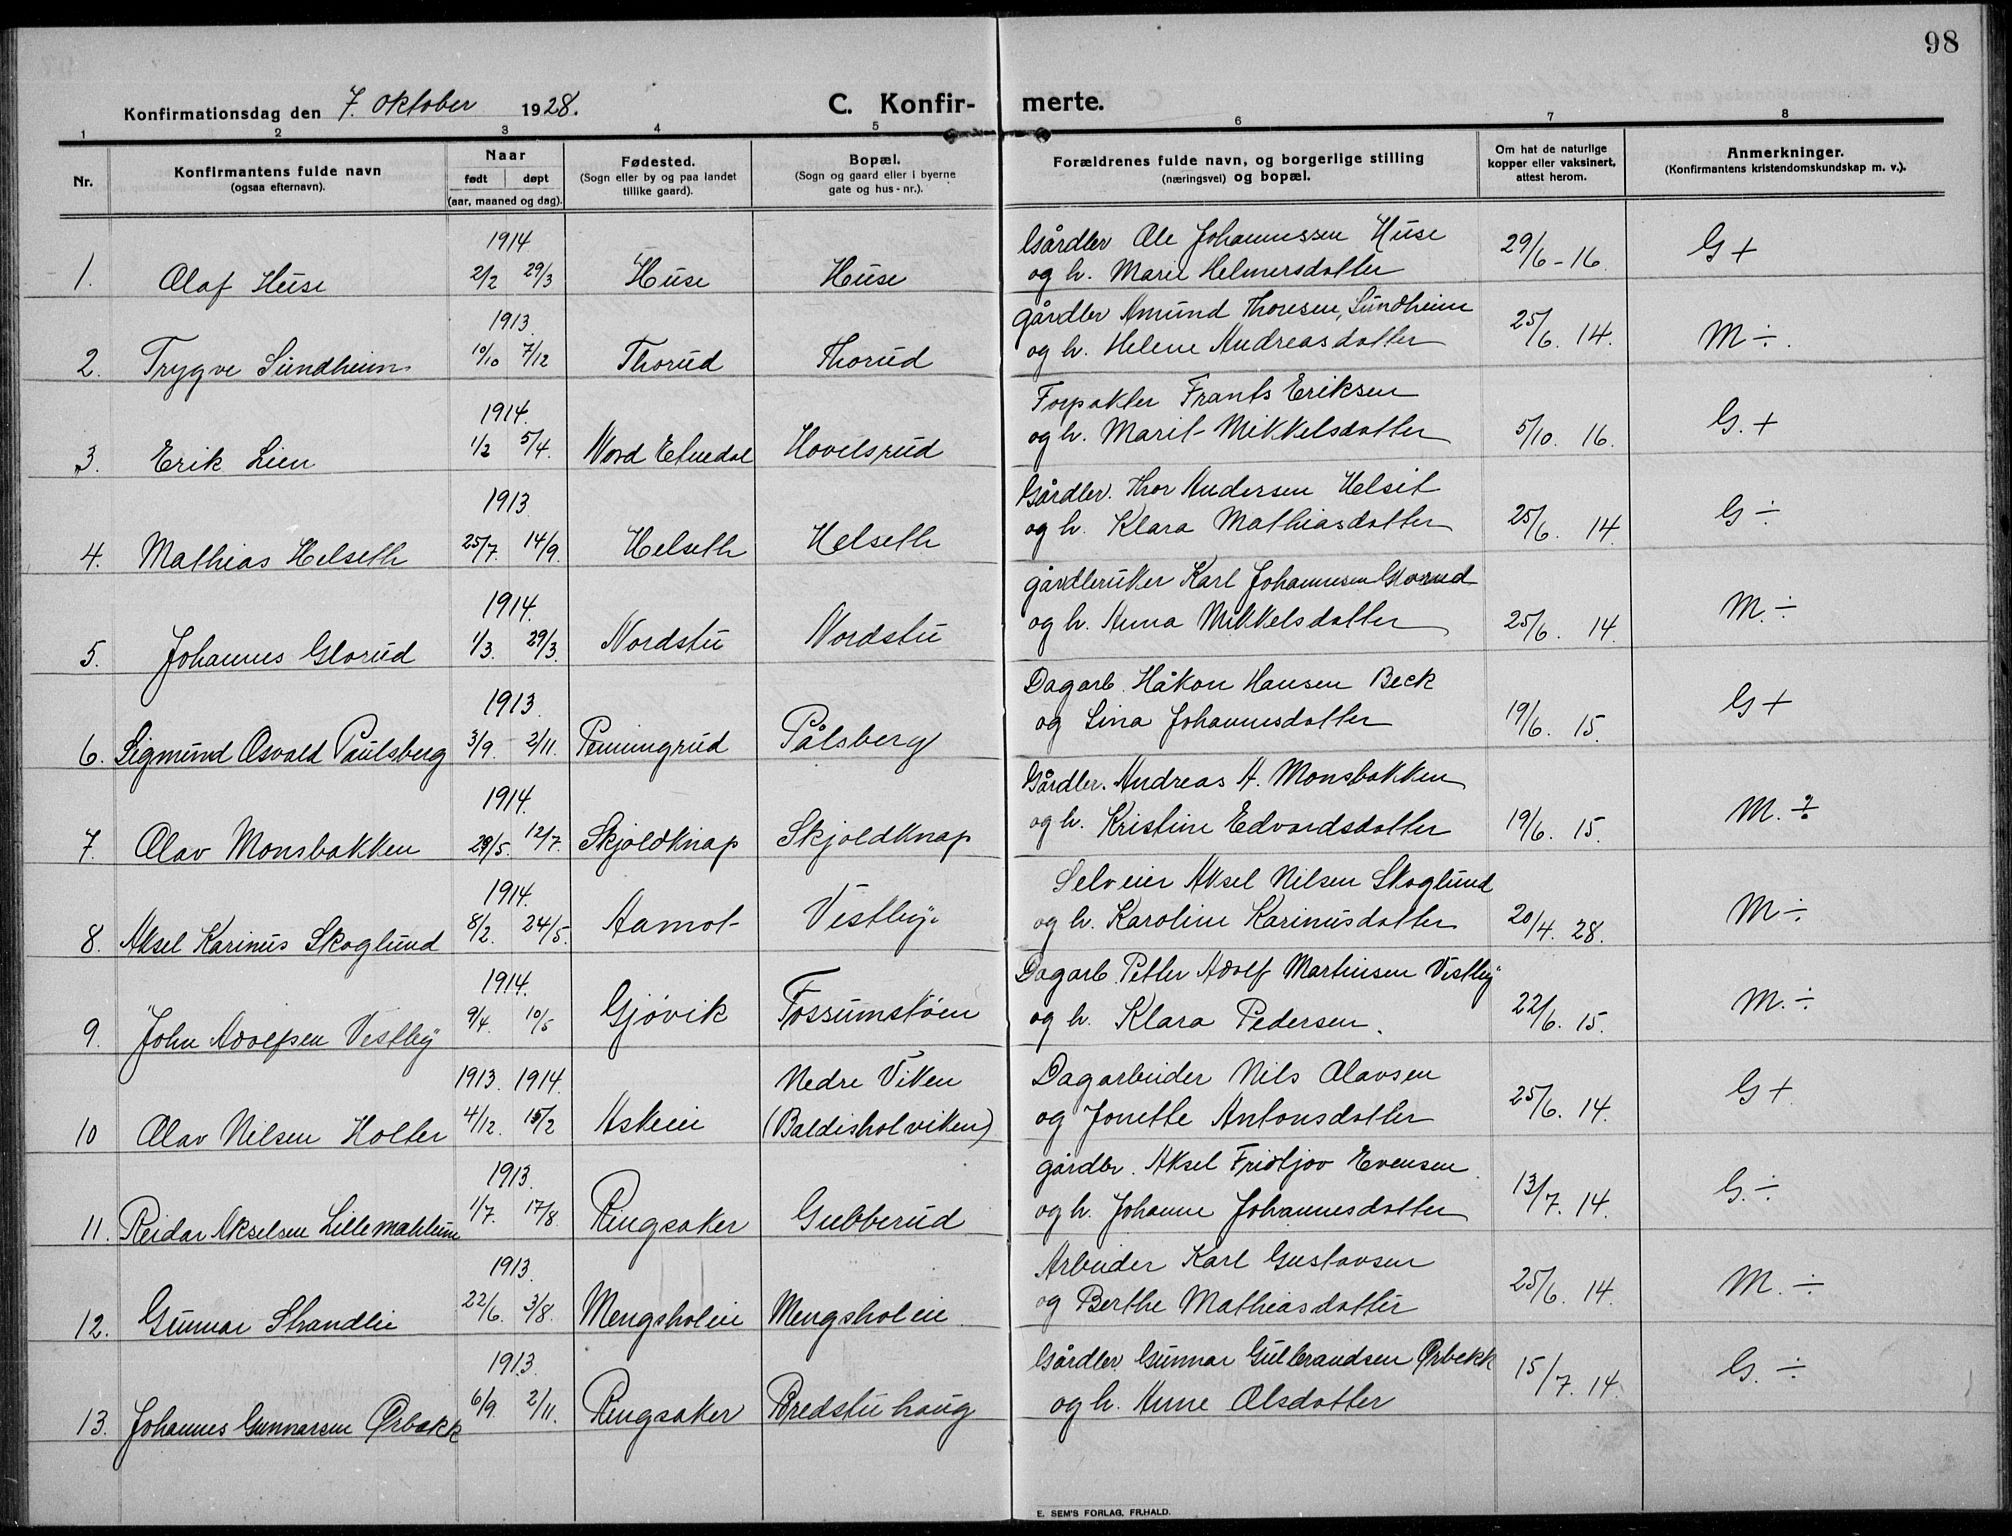 98
Konfirmationsdag den 7. oktober 1928.
C. Konfir- merte.
1 2 3 4 5 6 7 8
Nr.
Konfirmantens fulde navn
(ogsaa efternavn).
Naar
født døpt
(aar, maaned og dag).
Fødested.
(Sogn eller by og paa landet
tillike gaard).
Bopæl.
(Sogn og gaard eller i byerne
gate og hus-nr.).
Forældrenes fulde navn, og borgerlige stilling
(næringsvei) og bopæl.
Om hat de naturlige
kopper eller vaksinert,
attest herom.
Anmerkninger.
(Konfirmantens kristendomskundskap m. v.).
1914 Gårdbr Ole Johannessen Huse
1. Olaf Huse 2/2 29/3 Huse Huse og h. Marie Helmersdatter 29/6-16 G +
1913. gårdbr Amund Thoresen, Sundheim
2. Trygve Sundheim 10/10 7/12 Thorud Thorud og h. Helene Andreasdatter 25/6. 14. M ÷.
1914. Forpakter Frants Eriksen
3. Erik Lien 1/2 5/4. Nord Etnedal Hovelsrud og h. Marit Mikkelsdatter 5/10. 16. G. +
1913. Gårdbr. Thor Andersen Helset
4. Mathias Helseth 25/7. 14/9. Helseth Helseth og h. Klara Mathiasdatter 25/6. 14. G ÷
1914. gårdbruker Karl Johannesen Glorud
5. Johannes Glorud 1/3. 29/3. Nordstu Nordstu og h. Anna Mikkelsdatter 25/6. 14. M. ÷
1913. Dagarb. Håkon Hansen Beck
6. Sigmund Osvald Paulsberg 3/9. 2/11. Penningrud Pålsberg og Lina Johannesdatter 19/6. 15. G +
1914. Gårdbr. Andreas A. Monsbakken
7. Olav Monsbakken 29/5. 12/7. Skjoldknap Skjoldknap og h. Kristine Edvardsdatter 19/6. 15. M. ÷
1914. Selveier Aksel Nilsen Skoglund
8. Aksel Karinus Skoglund 8/2. 24/5. Aamot Vestby. og h. Karoline Karinusdatter 20/4. 28. M ÷
1914. Dagarb. Petter Adolf Martinsen Vestby
9. John Adolfsen Vestby 9/4. 10/5 Gjøvik Fossumstøen og h. Klara Pedersen. 22/6. 15. M. ÷
1913. 1914 Nedre Viken Dagarbeider Nils Olavsen
10 Olav Nilsen Holter 4/12. 15/2 Askeie (Baldisholviken) og Jonette Antonsdatter 25/6. 14. G +
1913. gårdbr. Aksel Fridtjov Evensen
11. Reidar Akselsen Lillemæhlum 1/7. 17/8. Ringsaker Gubberud og h. Johanne Johannesdatter 13/7. 14. G. ÷
1913. Arbeider Karl Gustavsen
12. Gunnar Strandlie 22/6. 3/8. Mengsholeie Mengsholeie og Berthe Mathiasdatter 25/6. 14. M. ÷
1913. Gårdbr. Gunnar Gulbrandsen Ørbekk
13. Johannes Gunnarsen Ørbekk 6/9. 2/11. Ringsaker Bredstuhaug og h. Anne Olsdatter 15/7. 14. G. ÷
E. SEM'S FORLAG, FR.HALD.